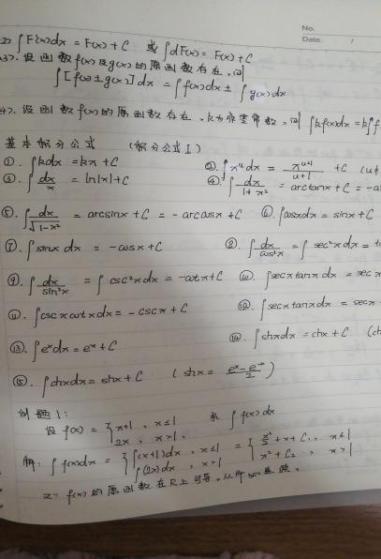 No.
Date.
2) ∫F'(x)dx = F(x) + C 或 ∫dF(x) = F(x) + C
(3). 设函数f(x)及g(x)的原函数存在，则
∫[f(x) ± g(x)]dx = ∫f(x)dx ± ∫g(x)dx
(4). 设函数f(x)的原函数存在，k为非零常数，则 ∫kf(x)dx = k∫f
基本积分公式 (积分公式I)
①. ∫kdx = kx + C ②. ∫x^u dx = x^(u+1)/(u+1) + C (u≠
③. ∫dx/x = ln|x| + C ④. ∫dx/(1+x²) = arctanx + C = -a
⑤. ∫dx/√(1-x²) = arcsinx + C = -arccosx + C ⑥. ∫cosxdx = sinx + C
⑦. ∫sinxdx = -cosx + C ⑧. ∫dx/cos²x = ∫sec²xdx = t
⑨. ∫dx/sin²x = ∫csc²xdx = -cotx + C ⑩. ∫secxtanxdx = secx
⑪. ∫cscxcotxdx = -cscx + C ⑫. ∫secxtanxdx = secx
⑬. ∫e^x dx = e^x + C ⑭. ∫shxdx = chx + C (ch
⑮. ∫chxdx = shx + C (shx = (e^x - e^-x)/2)
例题1:
设 f(x) = { x+1, x≤1 求 ∫f(x)dx
2x, x>1.
解: ∫f(x)dx = { ∫(x+1)dx, x≤1 = { x²/2 + x + C₁, x≤1
∫(2x)dx, x>1 x² + C₂, x>1
又∵ f(x)的原函数在R上可导，